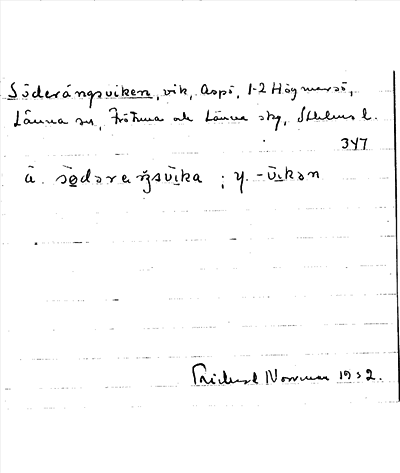 Söderängsviken, vik, Aspö, 1-2 Högmarsö,
Länna sn, Frötuna och Länna skg, Sthlms l.
347
ä. södəraŋsvika ; y. -vikən
Rickard Norrman 1932.